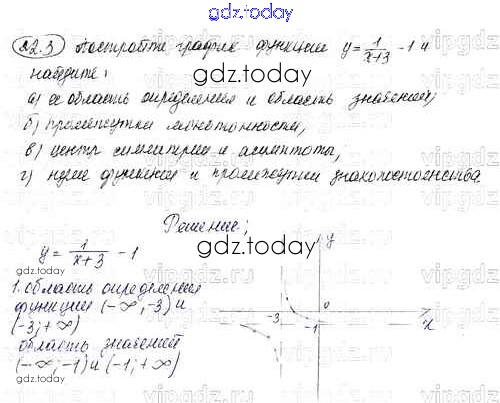 gdz.today
22.3 Постройте график функции y = 1/(x+3) - 1 и
найдите:
gdz.today
а) её область определения и область значений;
б) промежутки монотонности,
в) центр симметрии и асимптоты,
г) нули функции и промежутки знакопостоянства
Решение;
gdz.today
y = 1/(x+3) - 1
y
1. область определения
функции (-∞; -3) и
(-3; +∞)
0
-3
-1
x
область значений
(-∞; -1) и (-1; +∞)
gdz.today